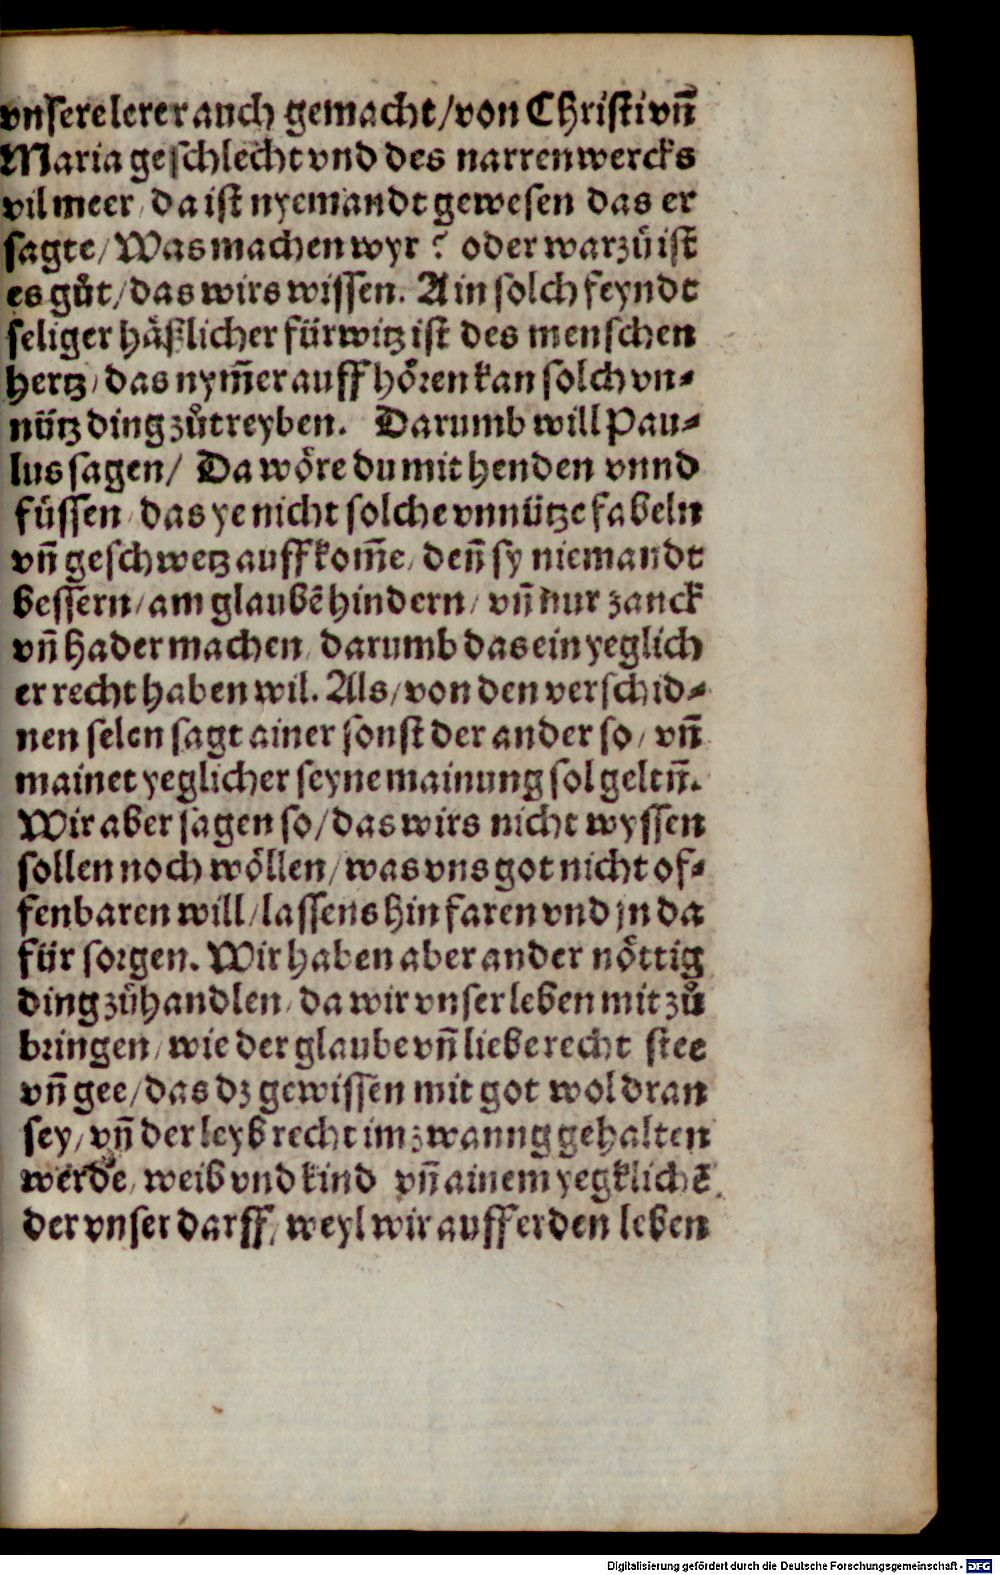 vnsere lerer auch gemacht/von Christi vn̄
Maria geschlecht vnd des narrenwercks
vil meer/ da ist nyemandt gewesen das er
sagte/ Was machen wyr? oder warzů ist
es gůt/das wirs wissen. Ain solch feyndt
seliger häßlicher fürwitz ist des menschen
hertz/ das nym̄er auff hören kan solch vn⸗
nütz ding zůtreyben. Darumb will Pau⸗
lus sagen/ Da wöre du mit henden vnnd
füssen/ das ye nicht solche vnnütze fabeln
vn̄ geschwetz auffkom̄e/ den̄ sy niemandt
bessern/ am glaubē hindern/ vn̄ nur zanck
vn̄ hader machen/ darumb das ein yeglich
er recht haben wil. Als/ von den verschid⸗
nen selen sagt ainer sonst der ander so/ vn̄
mainet yeglicher seyne mainung sol geltn̄.
Wir aber sagen so/das wirs nicht wyssen
sollen noch wöllen/was vns got nicht of⸗
fenbaren will/lassens hin faren vnd jn da
für sorgen. Wir haben aber ander nöttig
ding zůhandlen/ da wir vnser leben mit zů
bringen/ wie der glaube vn̄ liebe recht stee
vn̄ gee/das dz gewissen mit got wol dran
sey/ vn̄ der leyb recht im zwanng gehalten
werde/ weib vnd kind vn̄ ainem yegklichē
der vnser darff/ weyl wir auff erden leben
Digitalisierung gefördert durch die Deutsche Forschungsgemeinschaft - DFG